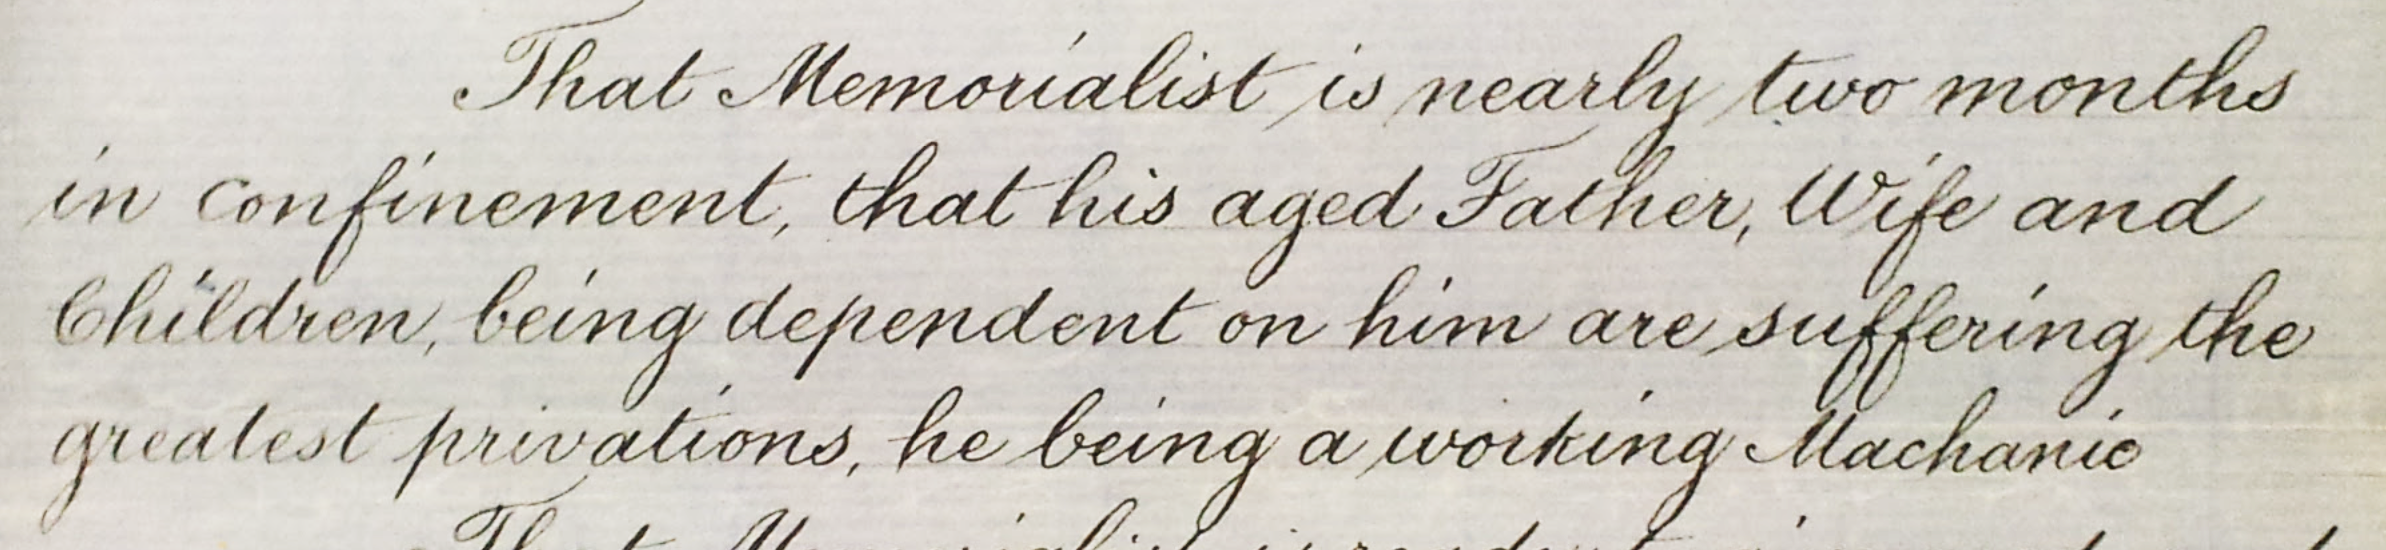 That Memorialist is nearly two months
in confinement, that his aged Father, Wife and
Children, being dependent on him are suffering the
greatest privations, he being a working Machanic
That Memorialist is